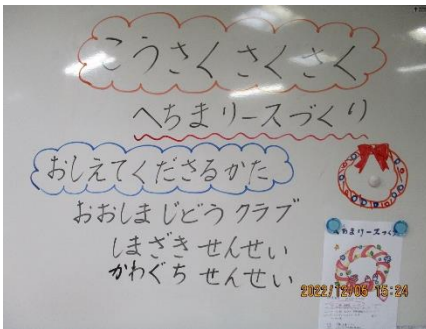 こうさくさくさく
へちまリースづくり
おしえてくださるかた
おおしまじどうクラブ
しまざきせんせい
かわぐちせんせい
へちまリースづくり
2022/12/05 15:24